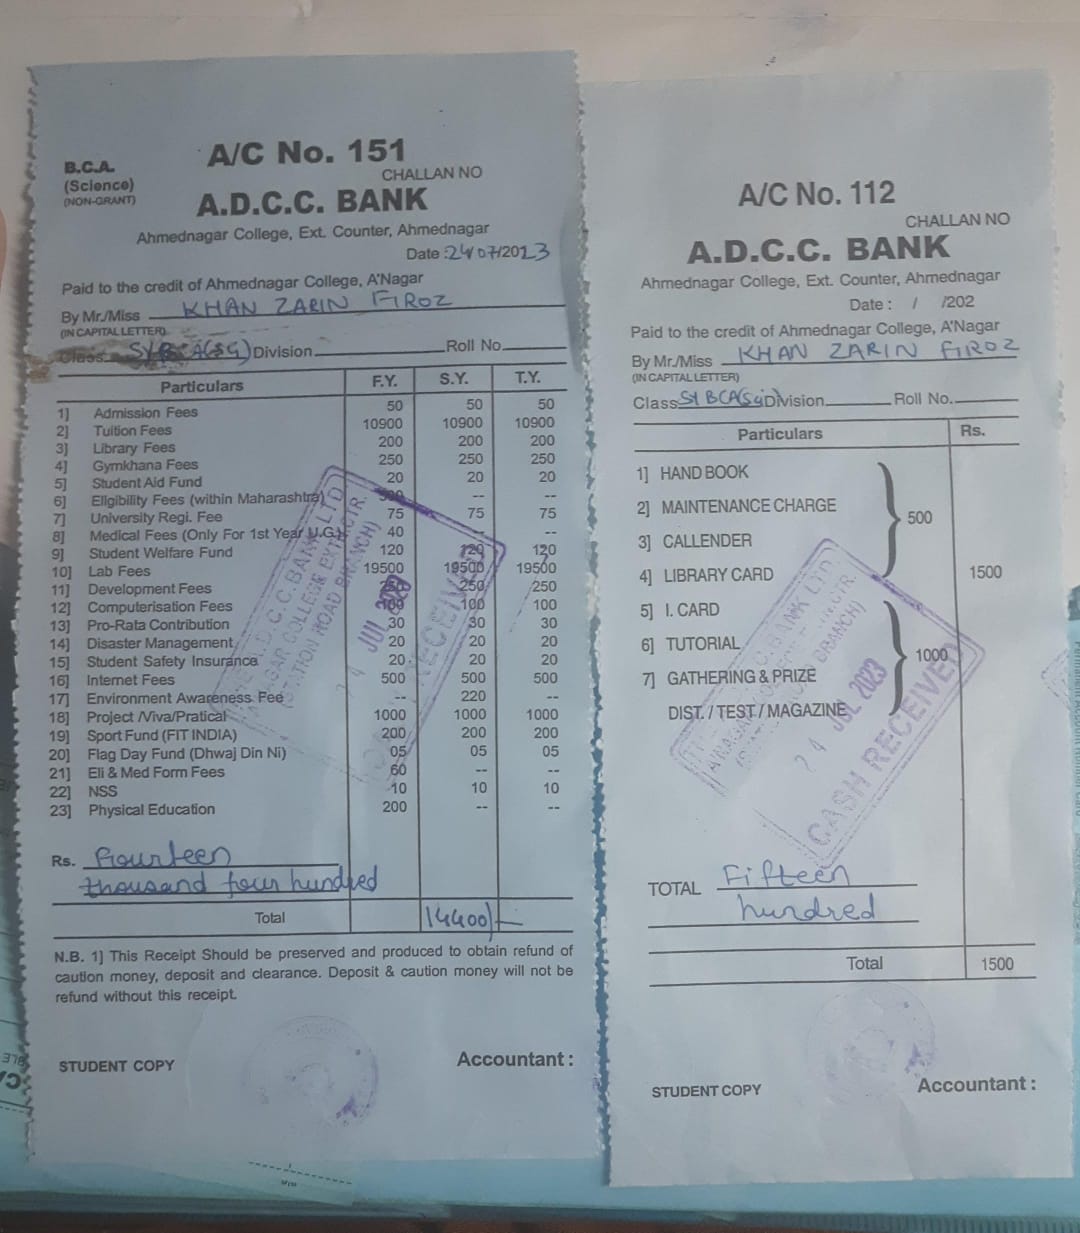 B.C.A.
(Science)
(NON-GRANT)
A/C No. 151
CHALLAN NO
A.D.C.C. BANK
Ahmednagar College, Ext. Counter, Ahmednagar
Date :24/07/2023
Paid to the credit of Ahmednagar College, A'Nagar
By Mr./Miss KHAN ZARIN FIROZ
(IN CAPITAL LETTER)
Class Division Roll No.
Particulars F.Y. S.Y. T.Y.
1] Admission Fees 50 50 50
2] Tuition Fees 10900 10900 10900
3] Library Fees 200 200 200
4] Gymkhana Fees 250 250 250
5] Student Aid Fund 20 20 20
6] Eligibility Fees (within Maharashtra) -- --
7] University Regi. Fee 75 75 75
8] Medical Fees (Only For 1st Year U.G.) 40 --
9] Student Welfare Fund 120 120 120
10] Lab Fees 19500 19500 19500
11] Development Fees 250 250
12] Computerisation Fees 100 100 100
13] Pro-Rata Contribution 30 30 30
14] Disaster Management 20 20 20
15] Student Safety Insurance 20 20 20
16] Internet Fees 500 500 500
17] Environment Awareness Fee -- 220 --
18] Project /Viva/Pratical 1000 1000 1000
19] Sport Fund (FIT INDIA) 200 200 200
20] Flag Day Fund (Dhwaj Din Ni) 05 05 05
21] Eli & Med Form Fees 60 -- --
22] NSS 10 10 10
23] Physical Education 200 -- --
Rs. Fourteen
thousand four hundred
Total 14400/-
N.B. 1] This Receipt Should be preserved and produced to obtain refund of
caution money, deposit and clearance. Deposit & caution money will not be
refund without this receipt.
STUDENT COPY Accountant :
24 JUL 2023
RECEIVED
A/C No. 112
CHALLAN NO
A.D.C.C. BANK
Ahmednagar College, Ext. Counter, Ahmednagar
Date : / /202
Paid to the credit of Ahmednagar College, A'Nagar
By Mr./Miss KHAN ZARIN FIROZ
(IN CAPITAL LETTER)
Class Division Roll No.
Particulars Rs.
1] HAND BOOK
2] MAINTENANCE CHARGE 500
3] CALLENDER
4] LIBRARY CARD 1500
5] I. CARD
6] TUTORIAL 1000
7] GATHERING & PRIZE
DIST. / TEST / MAGAZINE
24 JUL 2023
CASH RECEIVED
TOTAL Fifteen
hundred
Total 1500
STUDENT COPY Accountant :